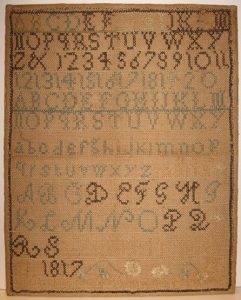 ABCDEF IKLM
NOPQRSTUVWXY
Z& 1234567891011
121314151617181920
ABCDEFGHIKLM
NOPQRSTUVWXY
abcdefghijklmnop
qrstuvwxyz
ABCDEFGHI
KLMNOPQ
RS
1817